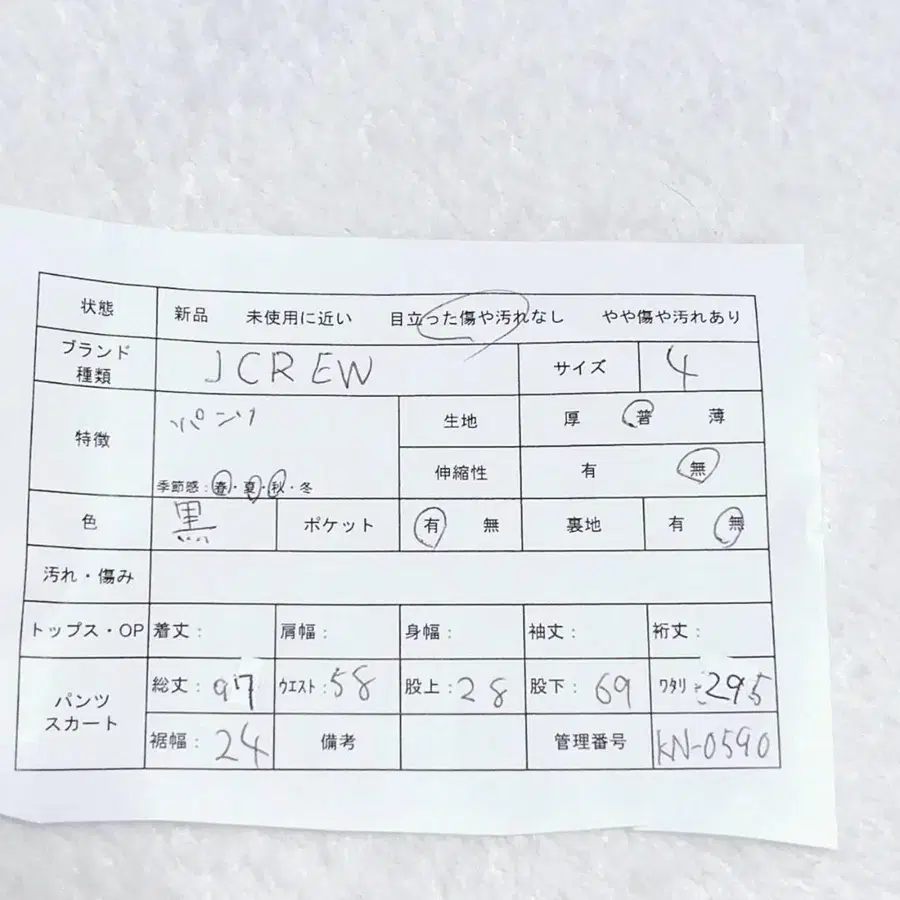 状態 新品 未使用に近い 目立った傷や汚れなし やや傷や汚れあり
ブランド種類 JCREW サイズ 4
特徴 パンツ 生地 厚 普 薄
季節感:春・夏・秋・冬 伸縮性 有 無
色 黒 ポケット 有 無 裏地 有 無
汚れ・傷み
トップス・OP 着丈: 肩幅: 身幅: 袖丈: 裄丈:
パンツ スカート 総丈:97 ウエスト:58 股上:28 股下:69 ワタリ:295
裾幅:24 備考 管理番号 KN-0590